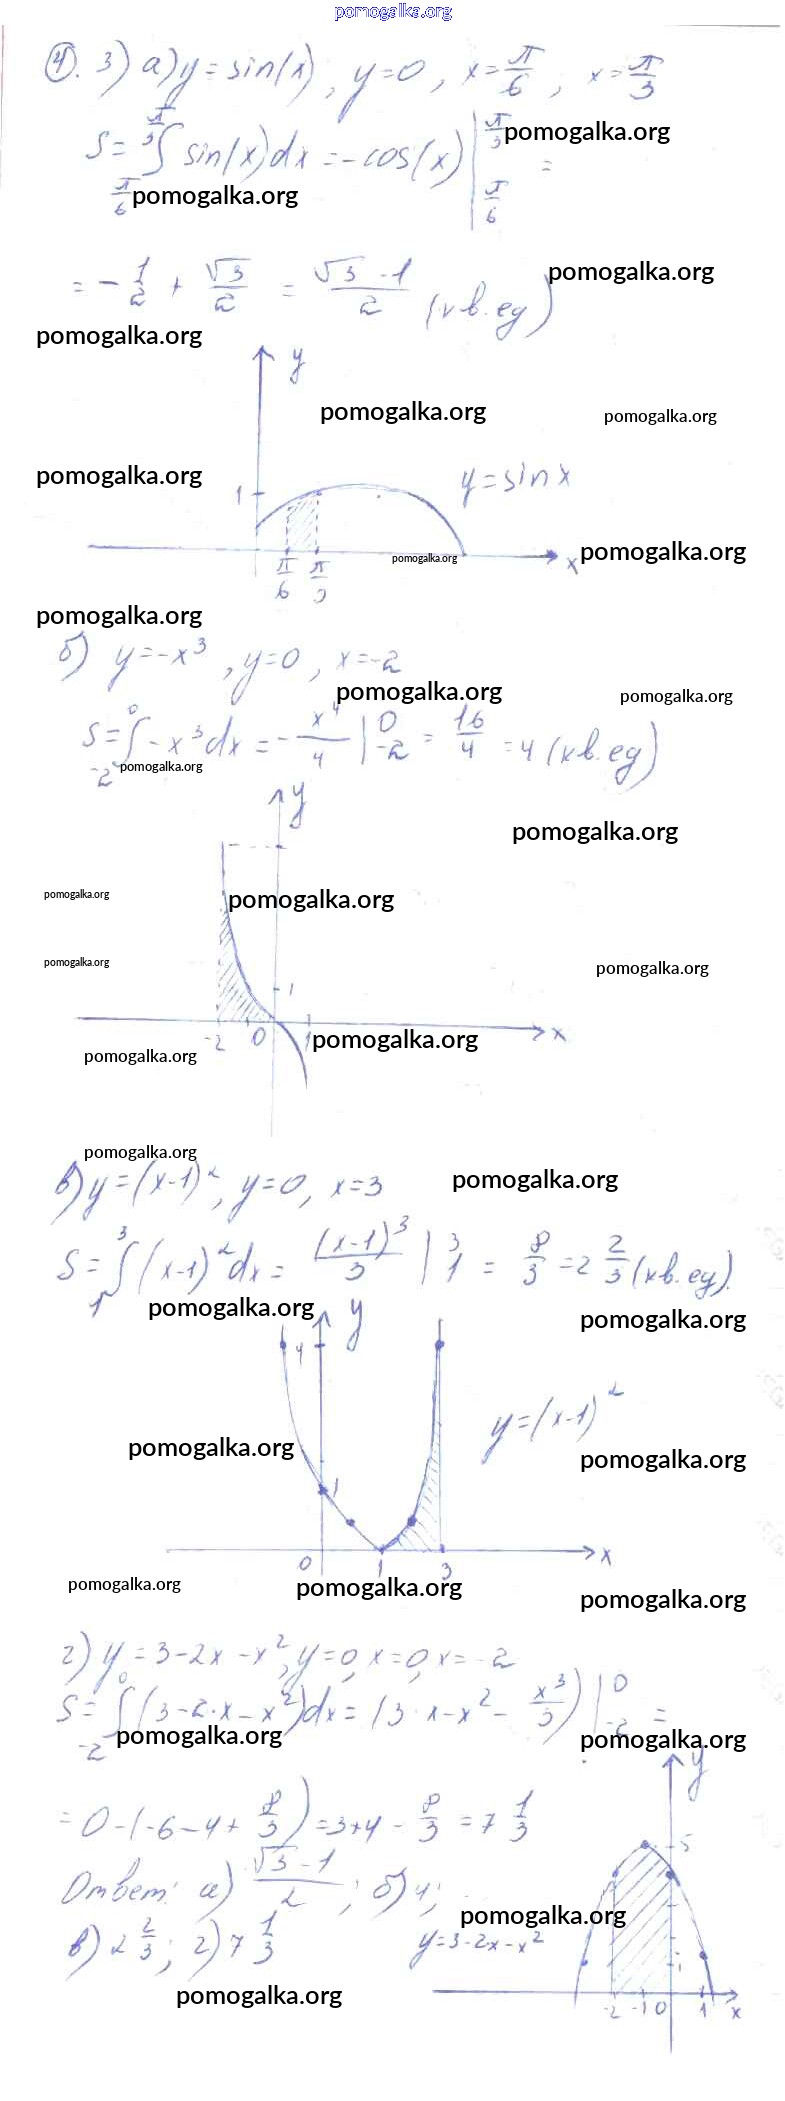 pomogalka.org
④. 3) а) y = sin(x), y=0, x=π/6, x=π/3
S = ∫ π/6 π/3 sin(x)dx = -cos(x) | π/3 π/6 =
pomogalka.org
pomogalka.org
= -1/2 + √3/2 = (√3 -1)/2 (кв. ед)
pomogalka.org
pomogalka.org
y
pomogalka.org pomogalka.org
pomogalka.org
1 y = sin x
pomogalka.org x pomogalka.org
π/6 π/3
pomogalka.org
б) y = -x³, y=0, x=-2
pomogalka.org pomogalka.org
S = ∫ -2 0 -x³dx = -x⁴/4 | 0 -2 = 16/4 = 4 (кв. ед)
pomogalka.org
y
pomogalka.org
pomogalka.org pomogalka.org
pomogalka.org pomogalka.org
1
-2 0 1 pomogalka.org x
pomogalka.org
pomogalka.org
в) y = (x-1)², y=0, x=3
pomogalka.org
S = ∫ 1 3 (x-1)²dx = (x-1)³/3 | 3 1 = 8/3 = 2 2/3 (кв. ед).
pomogalka.org y pomogalka.org
4
y = (x-1)²
pomogalka.org pomogalka.org
1
0 1 3 x
pomogalka.org pomogalka.org pomogalka.org
г) y = 3-2x-x², y=0, x=0, x=-2
S = ∫ -2 0 (3-2·x-x²)dx = (3·x-x²-x³/3) | 0 -2 =
pomogalka.org pomogalka.org
y
= 0-(-6-4+8/3) = 3+4-8/3 = 7 1/3
5
Ответ: а) (√3-1)/2; б) 4;
pomogalka.org
в) 2 2/3; г) 7 1/3 y=3-2x-x²
1
pomogalka.org
-2 -1 0 1 x